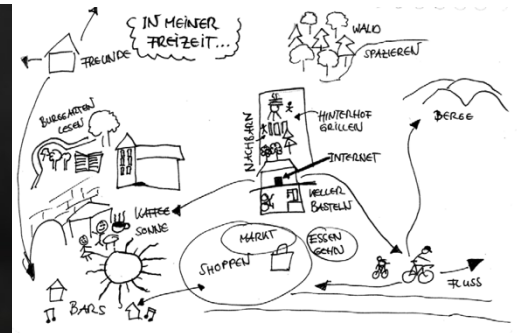 IN MEINER
FREIZEIT...
FREUNDE
WALD
SPAZIEREN
BURGGARTEN
LESEN
NACHBARN
HINTERHOF
GRILLEN
BERGE
INTERNET
KAFFEE
SONNE
KELLER
BASTELN
MARKT
SHOPPEN
ESSEN
GEHN
FLUSS
BARS